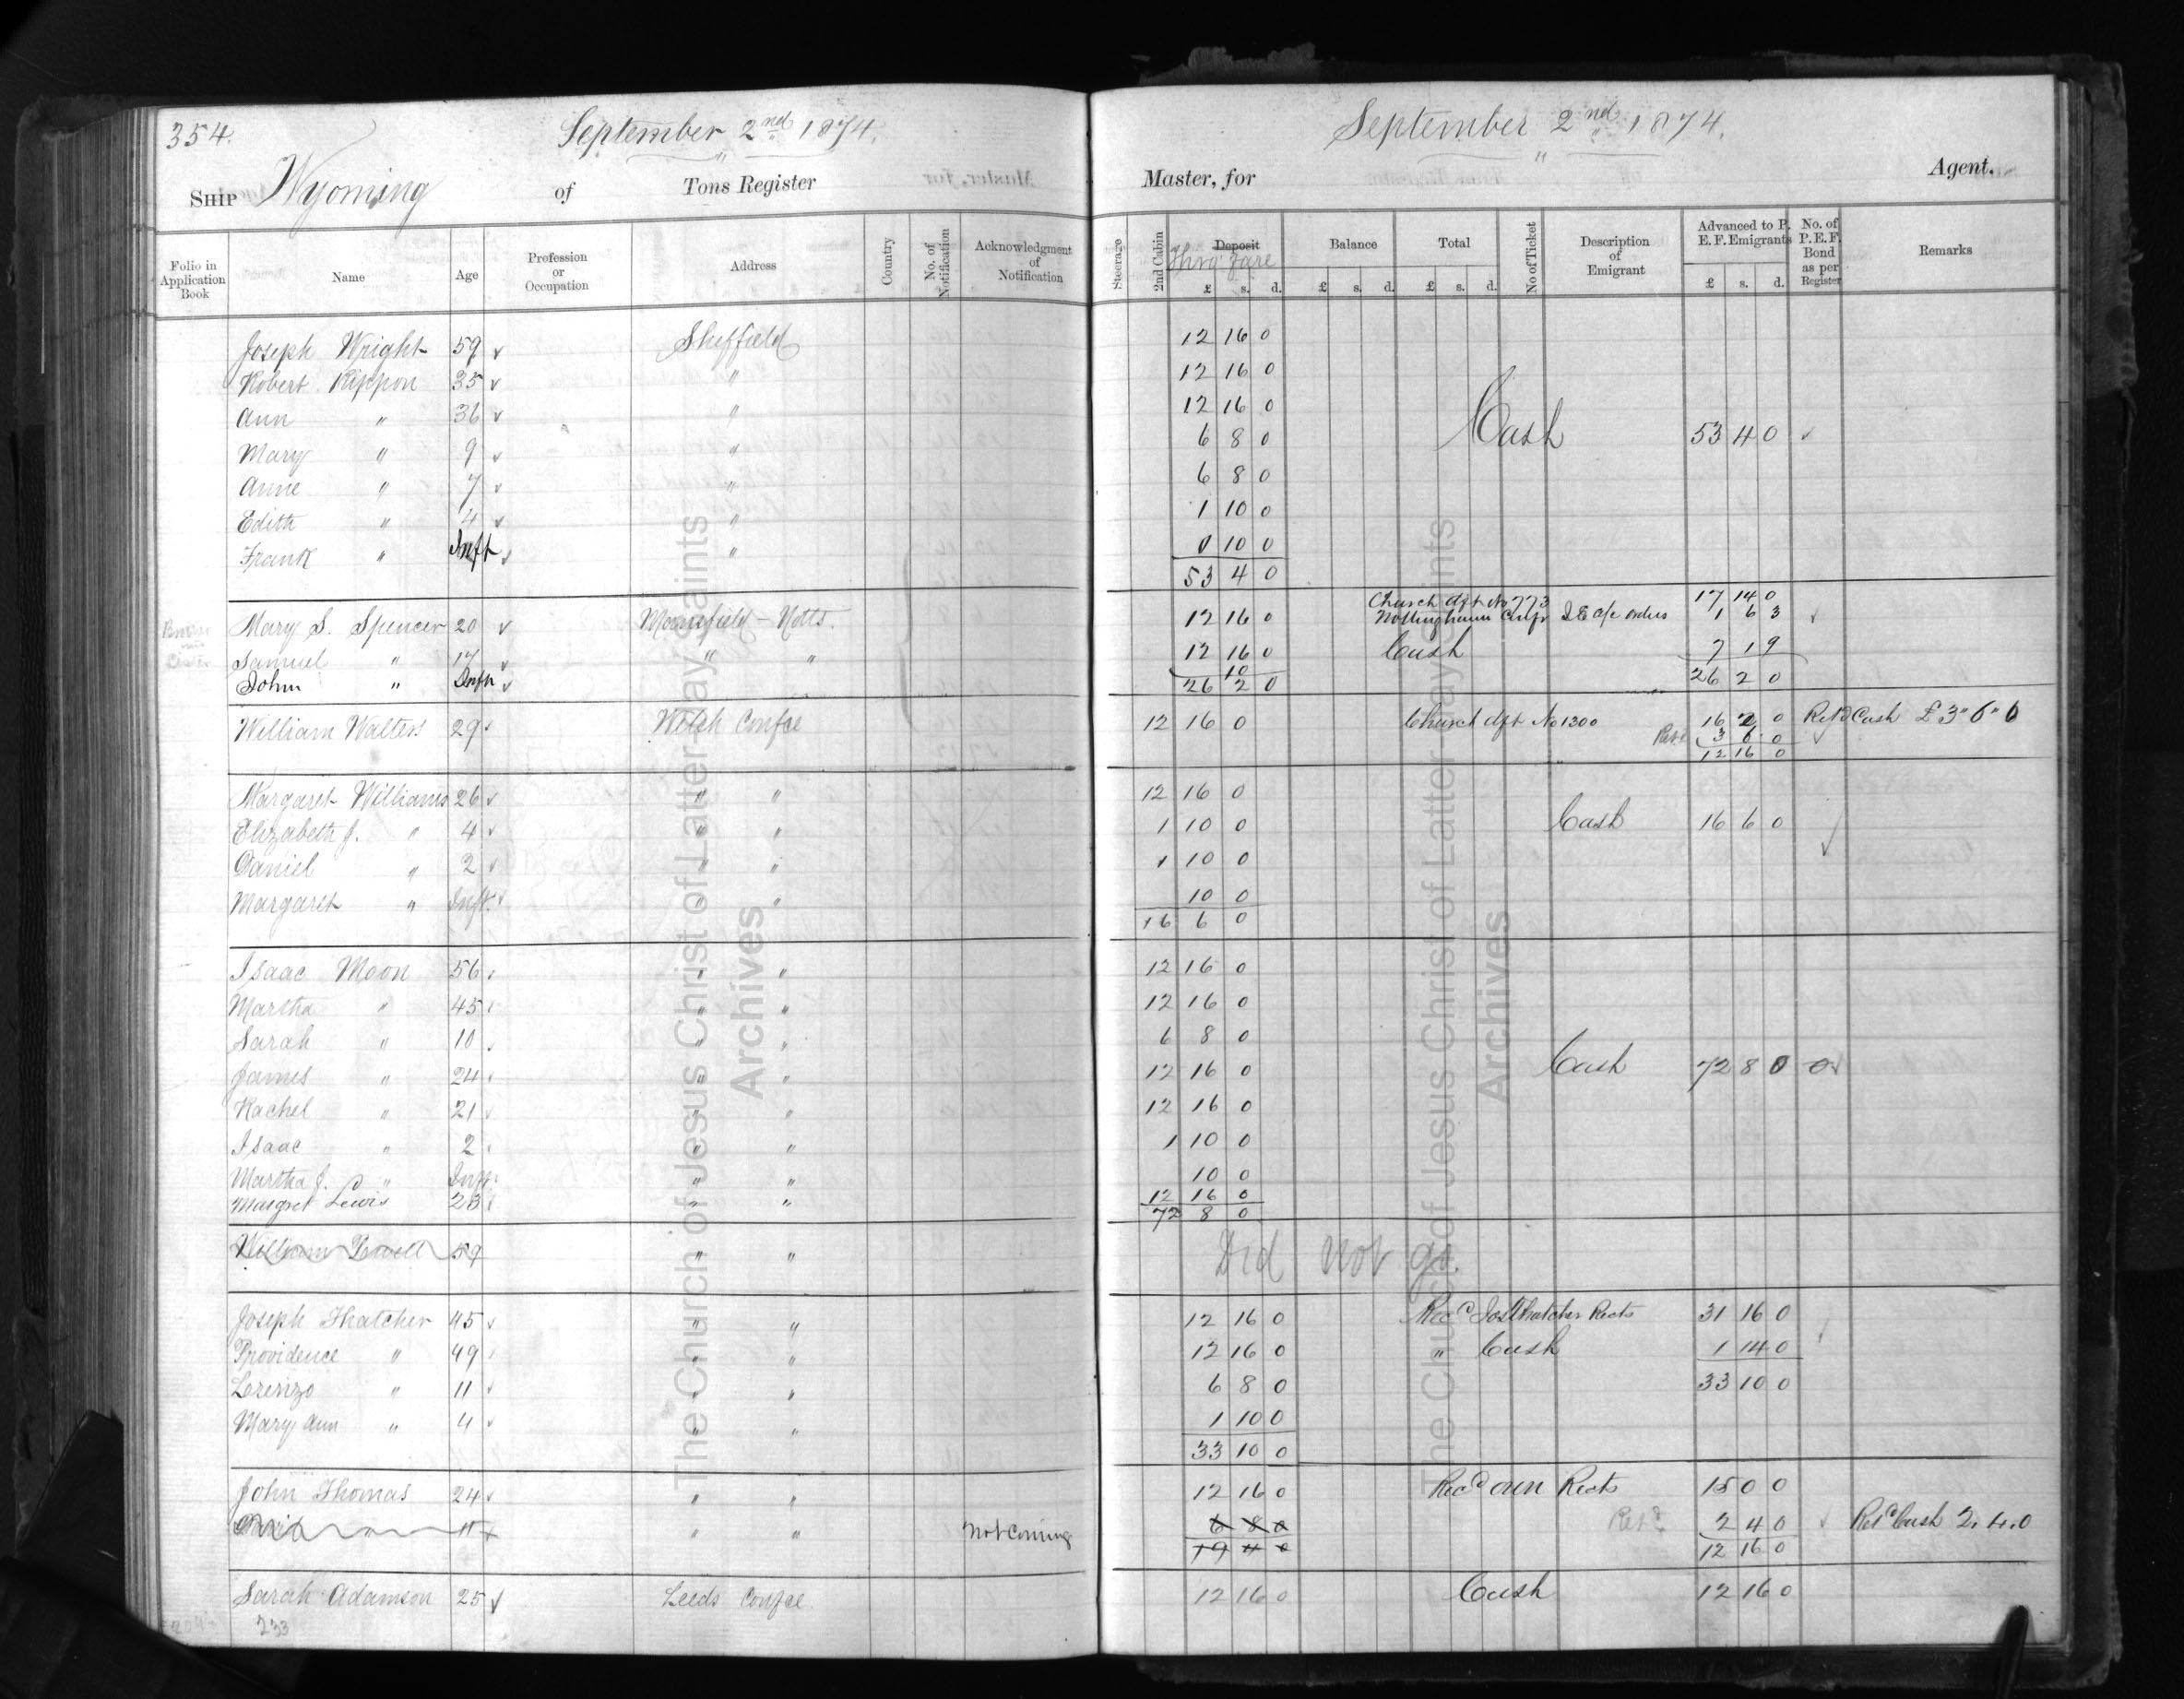 354. September 2nd 1874. September 2nd 1874.
SHIP Wyoming of Tons Register Master, for Agent.
Folio in Application Book Name Age Profession or Occupation Address Country No. of Notification Acknowledgment of Notification Steerage 2nd Cabin Deposit Thro' Fare £ s. d. Balance £ s. d. Total £ s. d. No of Ticket Description of Emigrant Advanced to P. E. F. Emigrants £ s. d. No. of P. E. F. Bond as per Register Remarks
Joseph Wright 59 ✓ Sheffield 12 16 0
Robert Rippon 35 ✓ " 12 16 0
Ann " 36 ✓ " 12 16 0
Mary " 9 ✓ " 6 8 0 Cash 53 4 0 ✓
Anne " 7 ✓ " 6 8 0
Edith " 4 ✓ " 1 10 0
Frank " Inft ✓ " 0 10 0
53 4 0
Church dft No 773 17 14 0
Mary S. Spencer 20 ✓ Mansfield - Notts. 12 16 0 Nottingham Confr I E a/c orders 1 6 3 ✓
Samuel " 17 ✓ " " 12 16 0 Cash 7 1 9
John " Inft ✓ 10
26 2 0 26 2 0
William Walters 29 ✓ Welch Confce 12 16 0 Church dft No 1300 16 2 0 Retd Cash £3"6"0
Retd 3 6 0 ✓
12 16 0
Margaret Williams 26 ✓ " " 12 16 0
Elizabeth J. " 4 ✓ " " 1 10 0 Cash 16 6 0 ✓
Daniel " 2 ✓ " " 1 10 0
Margaret " Inft. ✓ " " 10 0
16 6 0
Isaac Moon 56 ✓ " " 12 16 0
Martha " 45 ✓ " " 12 16 0
Sarah " 10 ✓ " " 6 8 0
James " 24 ✓ " " 12 16 0 Cash 72 8 0 ✓
Rachel " 21 ✓ " " 12 16 0
Isaac " 2 ✓ " " 1 10 0
Martha J. " Inft. " " 10 0
Margret Lewis 23 ✓ " " 12 16 0
72 8 0
William Powell 59 " " Did not go.
Joseph Thatcher 45 ✓ " " 12 16 0 Recd Jos Thatcher Rects 31 16 0 ✓
Providence " 49 ✓ " " 12 16 0 " Cash 1 14 0
Lorenzo " 11 ✓ " " 6 8 0 33 10 0
Mary Ann " 4 ✓ " " 1 10 0
33 10 0
John Thomas 24 ✓ " " 12 16 0 Recd own Rects 15 0 0
11 x " " Not Coming 6 8 0 Retd 2 4 0 ✓ Retd Cash 2. 4. 0
19 4 0 12 16 0
Sarah Adamson 25 ✓ Leeds Confce 12 16 0 Cash 12 16 0
233
The Church of Jesus Christ of Latter-day Saints
Archives
The Church of Jesus Christ of Latter-day Saints
Archives